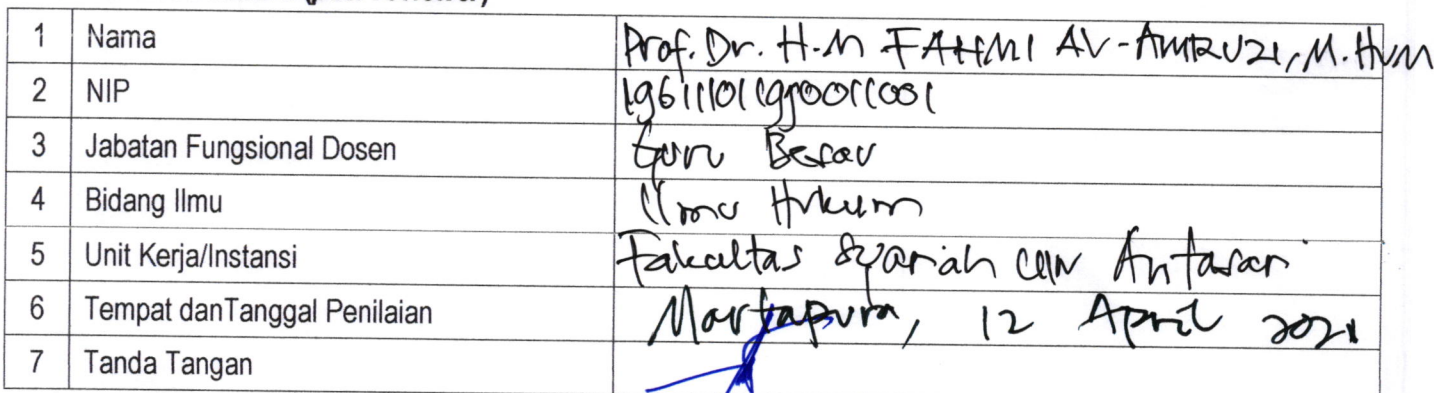 1 Nama Prof. Dr. H. M FAHMI AL-AMRUZI, M.HUM
2 NIP
3 Jabatan Fungsional Dosen Guru Besar
4 Bidang Ilmu Ilmu Hukum
5 Unit Kerja/Instansi Fakultas Syariah UIN Antasari
6 Tempat danTanggal Penilaian Martapura, 12 April 2021
7 Tanda Tangan